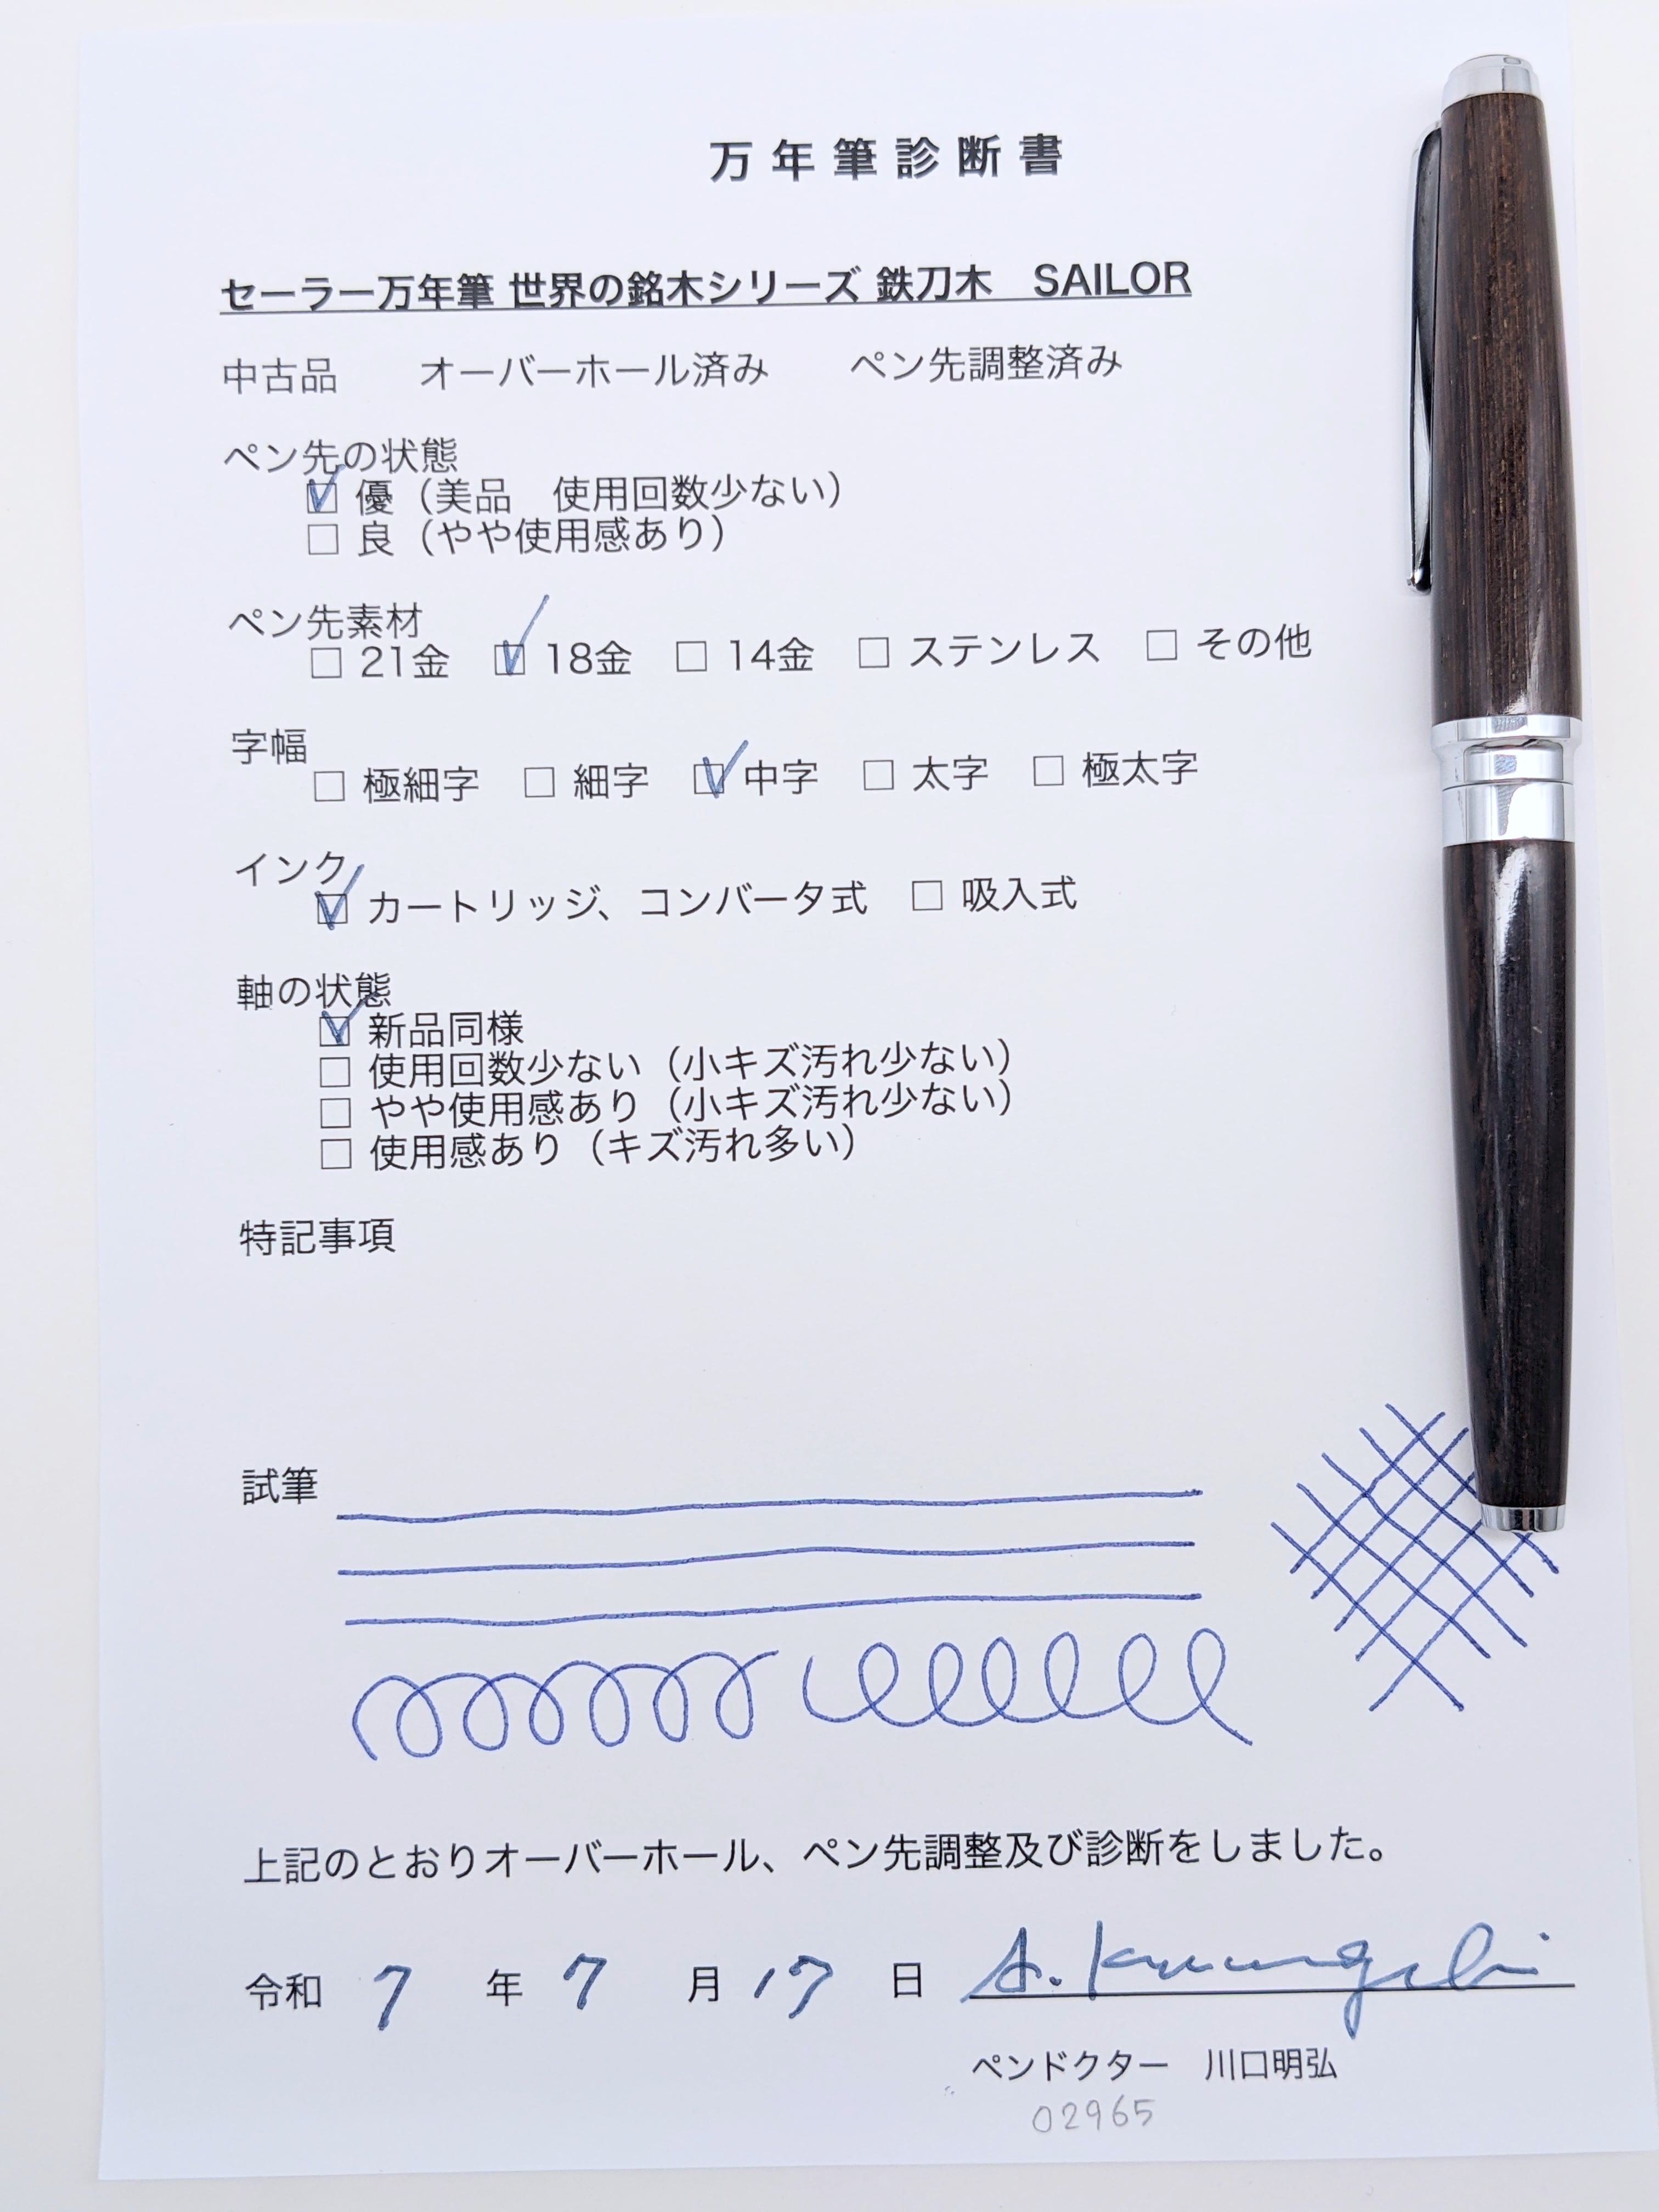 万年筆診断書
セーラー万年筆 世界の銘木シリーズ 鉄刀木　SAILOR
中古品　　オーバーホール済み　　ペン先調整済み
ペン先の状態
☑ 優（美品　使用回数少ない）
□ 良（やや使用感あり）
ペン先素材
□ 21金　☑ 18金　□ 14金　□ ステンレス　□ その他
字幅
□ 極細字　□ 細字　☑ 中字　□ 太字　□ 極太字
インク
☑ カートリッジ、コンバータ式　□ 吸入式
軸の状態
☑ 新品同様
□ 使用回数少ない（小キズ汚れ少ない）
□ やや使用感あり（小キズ汚れ少ない）
□ 使用感あり（キズ汚れ多い）
特記事項
試筆
上記のとおりオーバーホール、ペン先調整及び診断をしました。
令和 7 年 7 月 17 日 A. Kawaguchi
ペンドクター　川口明弘
02965